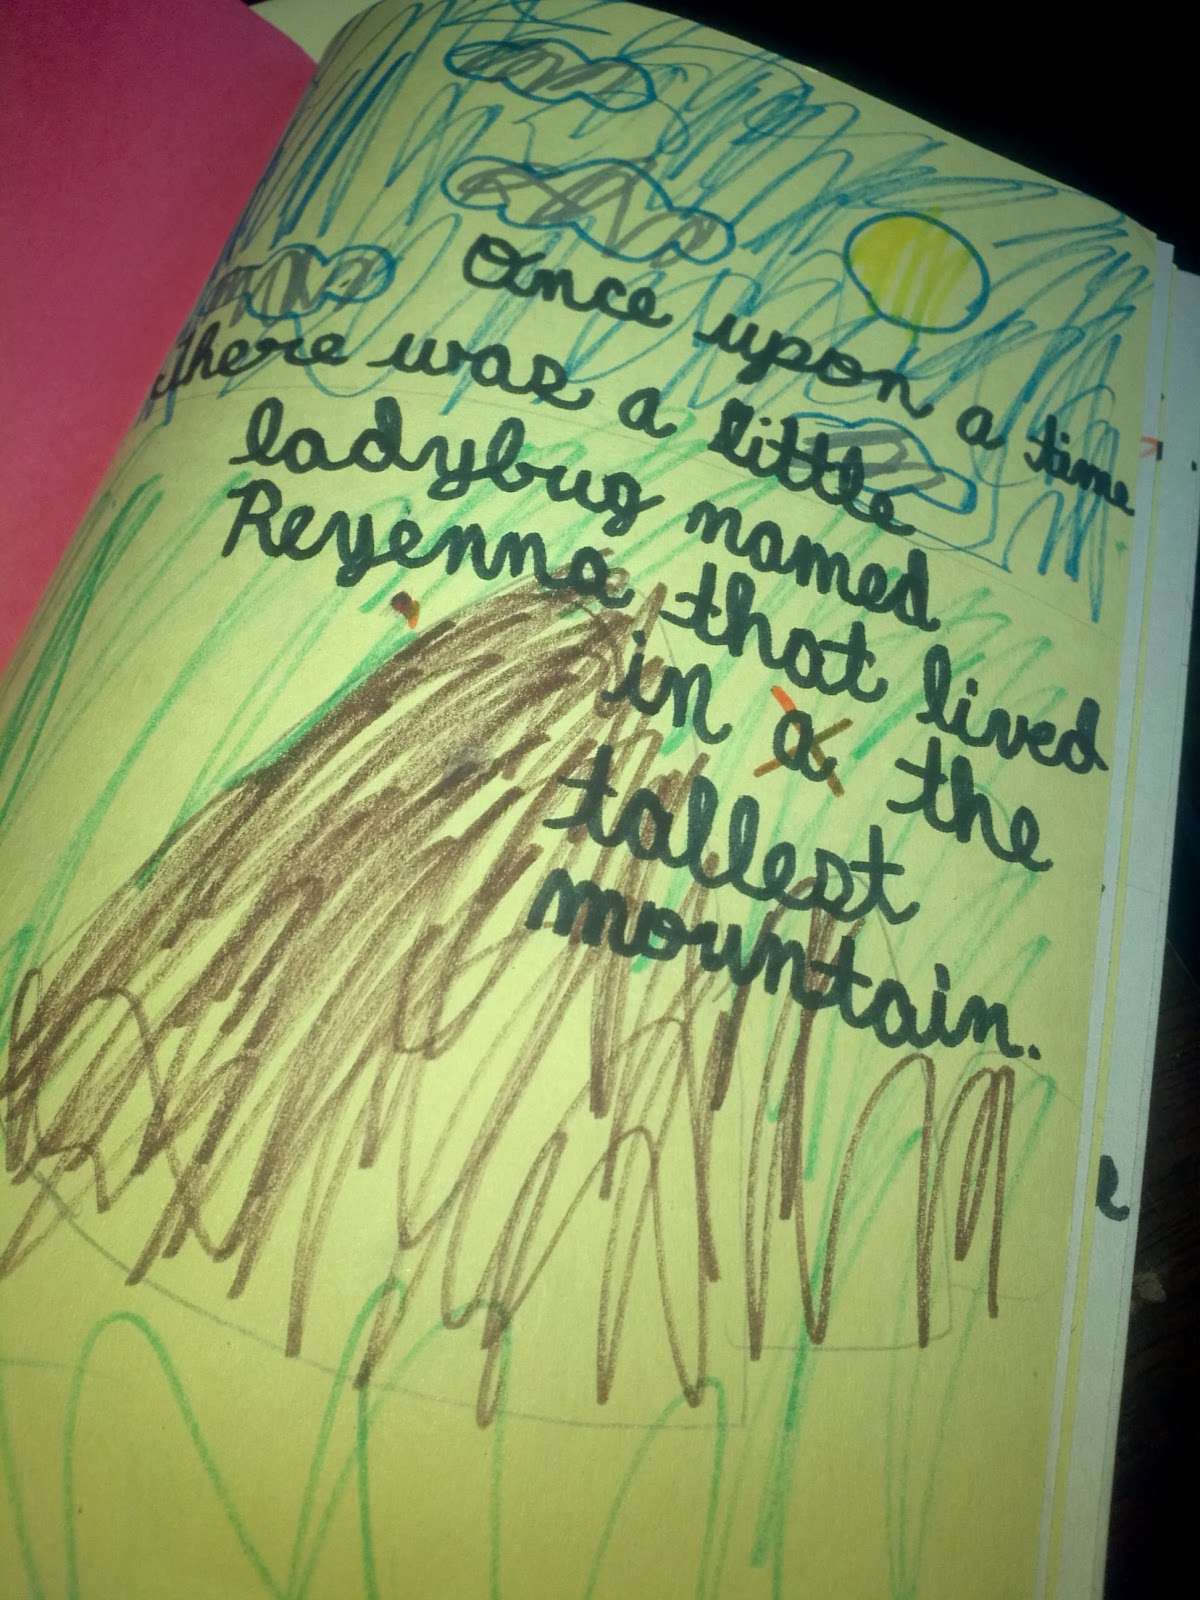 Once upon a time
there was a little
ladybug named
Reyenna that lived
in a the
tallest
mountain.
e